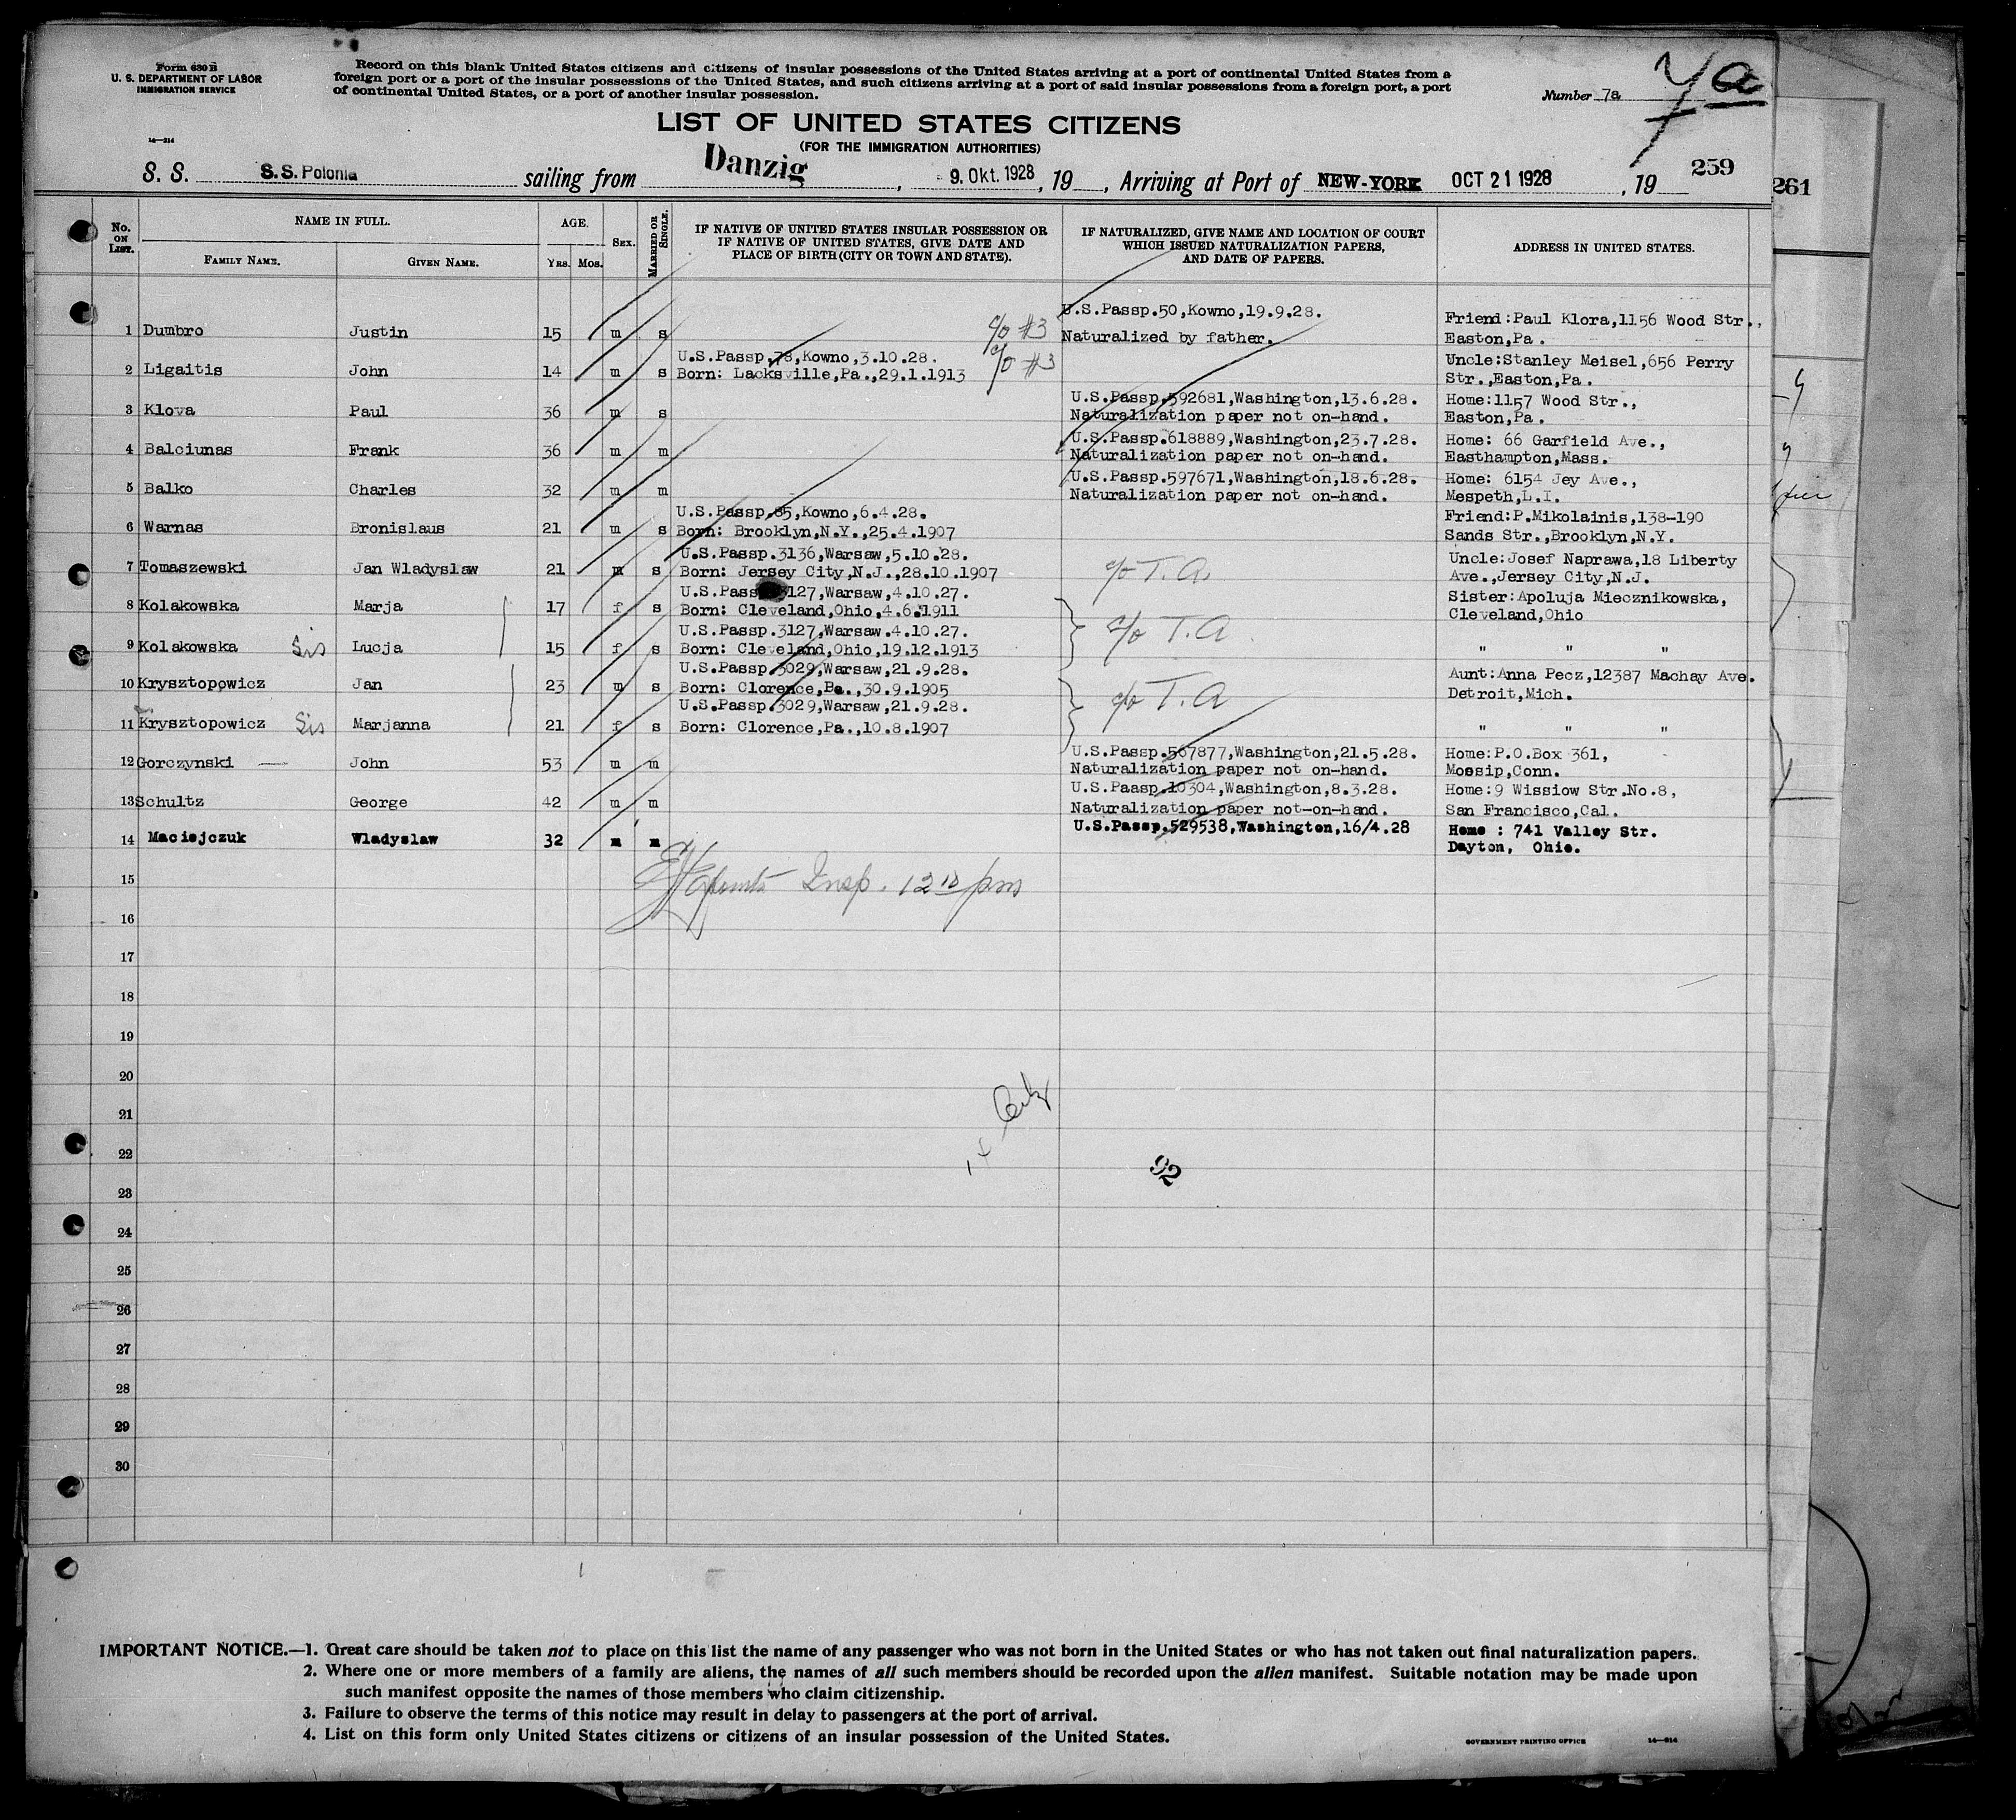 Form 630 B
U. S. DEPARTMENT OF LABOR
IMMIGRATION SERVICE
14—214
Record on this blank United States citizens and citizens of insular possessions of the United States arriving at a port of continental United States from a
foreign port or a port of the insular possessions of the United States, and such citizens arriving at a port of said insular possessions from a foreign port, a port
of continental United States, or a port of another insular possession.
Number 7a
7a
LIST OF UNITED STATES CITIZENS
(FOR THE IMMIGRATION AUTHORITIES)
S. S. S.S. Polonia sailing from Danzig, 9. Okt. 1928, 19, Arriving at Port of NEW-YORK OCT 21 1928, 19
259
261
No. ON LIST.
NAME IN FULL.
FAMILY NAME.
GIVEN NAME.
AGE.
YRS. MOS.
SEX.
MARRIED OR SINGLE.
IF NATIVE OF UNITED STATES INSULAR POSSESSION OR
IF NATIVE OF UNITED STATES, GIVE DATE AND
PLACE OF BIRTH (CITY OR TOWN AND STATE).
IF NATURALIZED, GIVE NAME AND LOCATION OF COURT
WHICH ISSUED NATURALIZATION PAPERS,
AND DATE OF PAPERS.
ADDRESS IN UNITED STATES.
U.S.Passp.50,Kowno,19.9.28. Friend:Paul Klora,1156 Wood Str.,
1 Dumbro Justin 15 m s c/o #3 Naturalized by father. Easton,Pa.
U.S.Passp.78,Kowno,3.10.28. Uncle:Stanley Meisel,656 Perry
2 Ligaitis John 14 m s Born: Lacksville,Pa.,29.1.1913 c/o #3 Str.,Easton,Pa.
U.S.Passp.592681,Washington,13.6.28. Home:1157 Wood Str.,
3 Klova Paul 36 m s Naturalization paper not on-hand. Easton,Pa.
U.S.Passp.618889,Washington,23.7.28. Home: 66 Garfield Ave.,
4 Balciunas Frank 36 m m Naturalization paper not on-hand. Easthampton,Mass.
U.S.Passp.597671,Washington,18.6.28. Home: 6154 Jey Ave.,
5 Balko Charles 32 m m Naturalization paper not on-hand. Mespeth,L.I.
U.S.Passp.85,Kowno,6.4.28. Friend:P.Mikolainis,138-190
6 Warnas Bronislaus 21 m s Born: Brooklyn,N.Y.,25.4.1907 Sands Str.,Brooklyn,N.Y.
U.S.Passp.3136,Warsaw,5.10.28. Uncle:Josef Naprawa,18 Liberty
7 Tomaszewski Jan Wladyslaw 21 m s Born: Jersey City,N.J.,28.10.1907 c/o T.A. Ave.,Jersey City,N.J.
U.S.Passp.3127,Warsaw,4.10.27. Sister:Apoluja Miecznikowska,
8 Kolakowska Marja 17 f s Born: Cleveland,Ohio,4.6.1911 Cleveland,Ohio
U.S.Passp.3127,Warsaw.4.10.27. c/o T.A.
9 Kolakowska Sis Lucja 15 f s Born: Cleveland,Ohio,19.12.1913 " " "
U.S.Passp.3029,Warsaw,21.9.28. Aunt:Anna Pecz,12387 Machay Ave.
10 Krysztopowicz Jan 23 m s Born: Clorence,Pa.,30.9.1905 c/o T.A Detroit,Mich.
U.S.Passp.3029,Warsaw,21.9.28.
11 Krysztopowicz Sis Marjanna 21 f s Born: Clorence,Pa.,10.8.1907 " " "
U.S.Passp.567877,Washington,21.5.28. Home:P.O.Box 361,
12 Gorczynski — John 53 m m Naturalization paper not on-hand. Moosip,Conn.
U.S.Paasp.10304,Washington,8.3.28. Home:9 Wissiow Str.No.8,
13 Schultz George 42 m m Naturalization paper not-on-hand. San Francisco,Cal.
U.S.Passp.529538,Washington,16/4.28 Home : 741 Valley Str.
14 Maciejczuk Wladyslaw 32 m m Dayton, Ohio.
15
Insp. 12 10 pm
16
17
18
19
20
21
22
92
23
24
25
26
27
28
29
30
IMPORTANT NOTICE.—1. Great care should be taken not to place on this list the name of any passenger who was not born in the United States or who has not taken out final naturalization papers.
2. Where one or more members of a family are aliens, the names of all such members should be recorded upon the alien manifest. Suitable notation may be made upon
such manifest opposite the names of those members who claim citizenship.
3. Failure to observe the terms of this notice may result in delay to passengers at the port of arrival.
4. List on this form only United States citizens or citizens of an insular possession of the United States.
GOVERNMENT PRINTING OFFICE 14—214